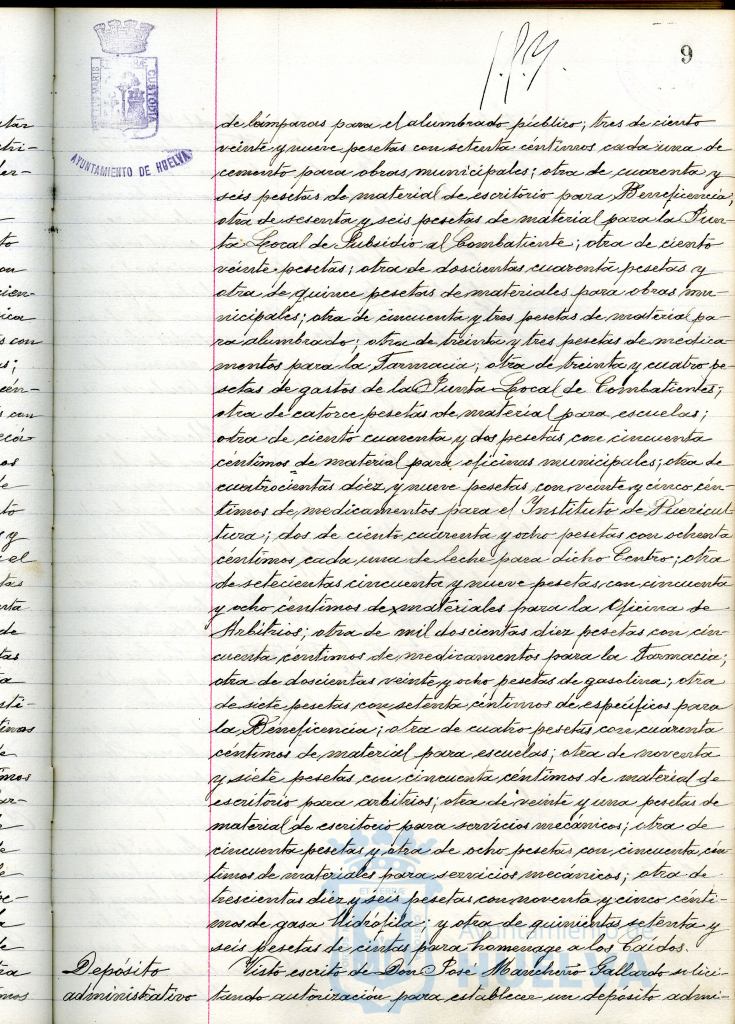 9
PORTUS MARIS ET TERRÆ CUSTODIA
AYUNTAMIENTO DE HUELVA
de lámparas para el alumbrado público; tres de ciento
veinte y nueve pesetas con setenta céntimos cada una de
cemento para obras municipales; otra de cuarenta y
seis pesetas de material de escritorio para Beneficencia;
otra de sesenta y seis pesetas de material para la Jun-
ta Local de Subsidio al Combatiente; otra de ciento
veinte pesetas; otra de doscientas cuarenta pesetas y
otra de quince pesetas de materiales para obras mu-
nicipales; otra de cincuenta y tres pesetas de material pa-
ra alumbrado; otra de treinta y tres pesetas de medica-
mentos para la Farmacia; otra de treinta y cuatro pe-
setas de gastos de la Junta Local de Combatientes;
otra de catorce pesetas de material para escuelas;
otra de ciento cuarenta y dos pesetas con cincuenta
céntimos de material para oficinas municipales; otra de
cuatrocientas diez y nueve pesetas con veinte y cinco cén-
timos de medicamentos para el Instituto de Puericul-
tura; dos de ciento cuarenta y ocho pesetas con ochenta
céntimos cada una de leche para dicho Centro; otra
de setecientas cincuenta y nueve pesetas con cincuenta
y ocho céntimos de materiales para la Oficina de
Arbitrios; otra de mil doscientas diez pesetas con cin-
cuenta céntimos de medicamentos para la Farmacia;
otra de doscientas veinte y ocho pesetas de gasolina; otra
de siete pesetas con setenta céntimos de específicos para
la Beneficencia; otra de cuatro pesetas con cuarenta
céntimos de material para escuelas; otra de noventa
y siete pesetas con cincuenta céntimos de material de
escritorio para arbitrios; otra de veinte y una pesetas de
material de escritorio para servicios mecánicos; otra de
cincuenta pesetas y otra de ocho pesetas con cincuenta cén-
timos de materiales para servicios mecánicos; otra de
trescientas diez y seis pesetas con noventa y cinco cénti-
mos de gasa hidrófila; y otra de quinientas setenta y
seis pesetas de cintas para homenage a los Caídos.
Depósito
administrativo
Visto escrito de Don José Mancheño Gallardo solici-
tando autorización para establecer un depósito admi-
Ayuntamiento de
HUELVA